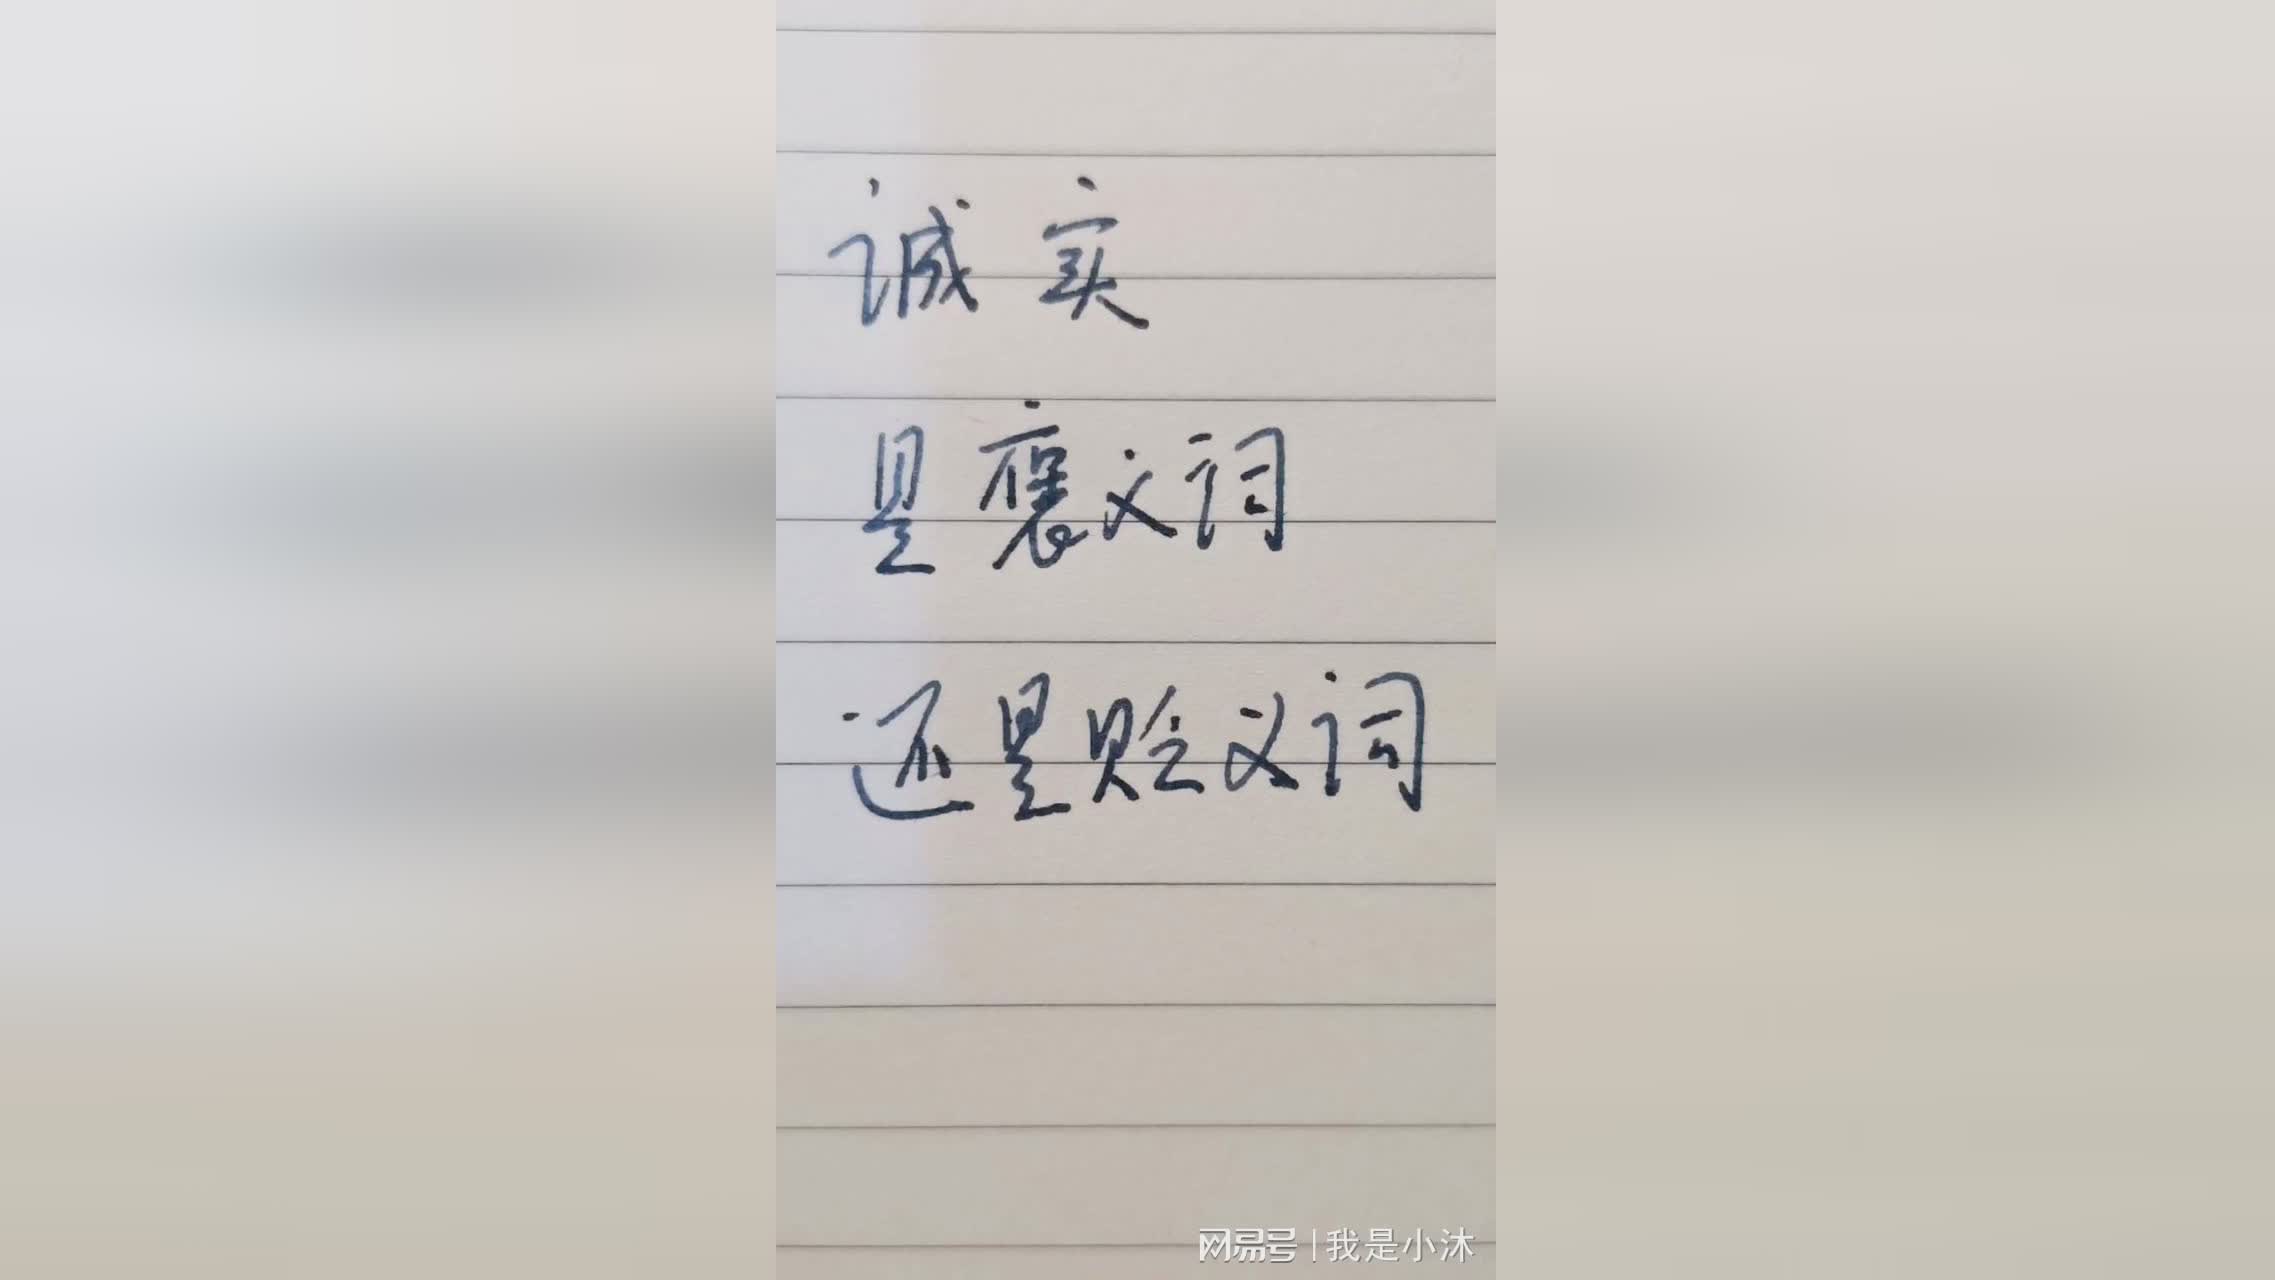 诚实
是褒义词
还是贬义词
网易号 | 我是小沐